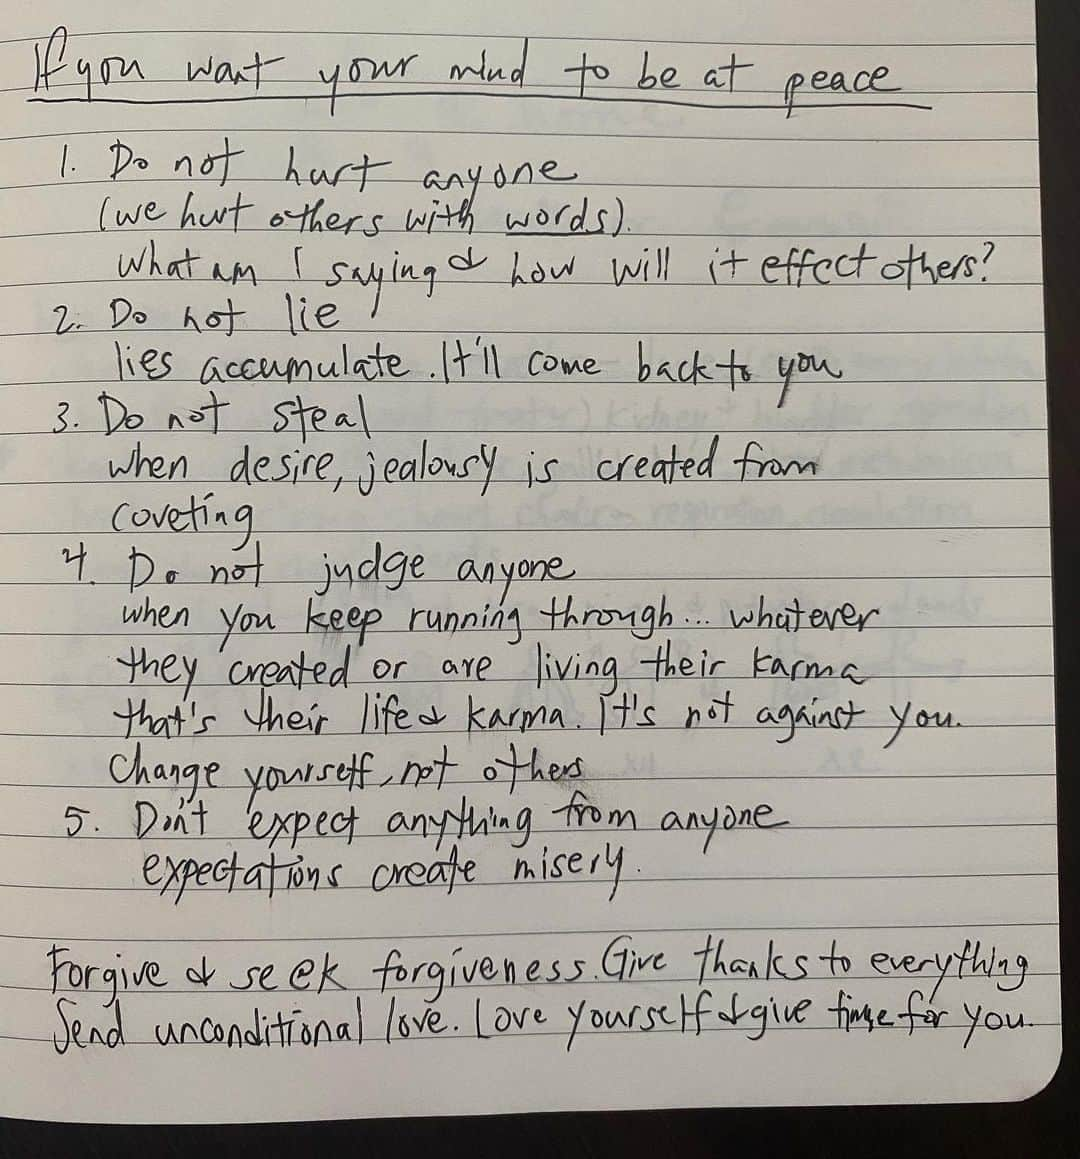 If you want your mind to be at peace
1. Do not hurt anyone
(we hurt others with words).
What am I saying & how will it effect others?
2. Do not lie
lies accumulate. It'll come back to you
3. Do not steal
when desire, jealousy is created from
coveting
4. Do not judge anyone
when you keep running through... whatever
they created or are living their karma
that's their life & karma. It's not against you.
Change yourself, not others
5. Don't expect anything from anyone
expectations create misery.
Forgive & seek forgiveness. Give thanks to everything
Send unconditional love. Love yourself & give time for you.